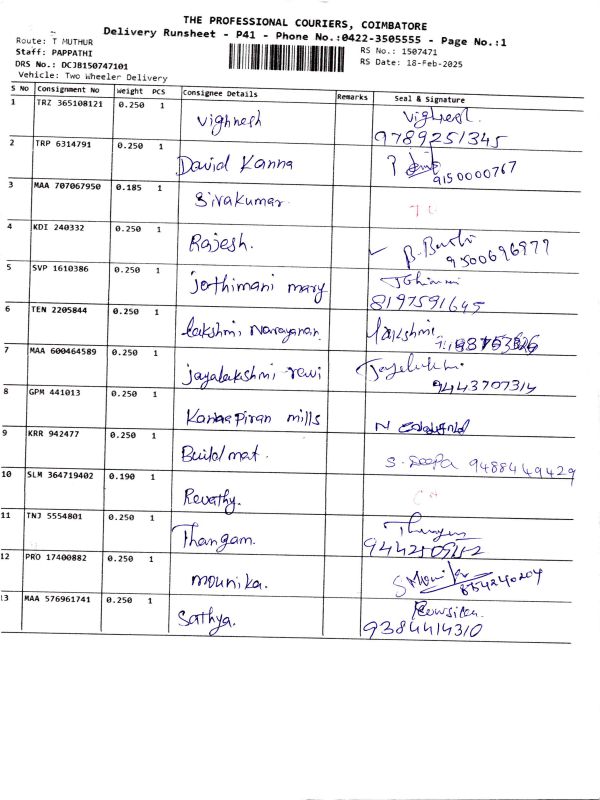 THE PROFESSIONAL COURIERS, COIMBATORE
Delivery Runsheet - P41 - Phone No.:0422-3505555 - Page No.:1
Route: T MUTHUR
RS No.: 1507471
Staff: PAPPATHI
RS Date: 18-Feb-2025
DRS No.: DCJB150747101
Vehicle: Two Wheeler Delivery
S No Consignment No Weight PCS Consignee Details Remarks Seal & Signature
1 TRZ 365108121 0.250 1 Vighnesh Vighnesh.
9789251345
2 TRP 6314791 0.250 1 David Kanna
9150000767
3 MAA 707067950 0.185 1 Sivakumar
4 KDI 240332 0.250 1 Rajesh.
9500696977
5 SVP 1610386 0.250 1 jothimani mary
8197591645
6 TEN 2205844 0.250 1 lakshmi Narayanan. lakshmi
7 MAA 600464589 0.250 1 jayalakshmi revi
9443707314
8 GPM 441013 0.250 1 Kannapiran mills N
9 KRR 942477 0.250 1 Buildmat. S. Deepa 9488449429
10 SLM 364719402 0.190 1 Revathy.
11 TNJ 5554801 0.250 1 Thangam.
12 PRO 17400882 0.250 1 mounika. S Mounika
13 MAA 576961741 0.250 1 Sathya. Kowsika.
9384414310